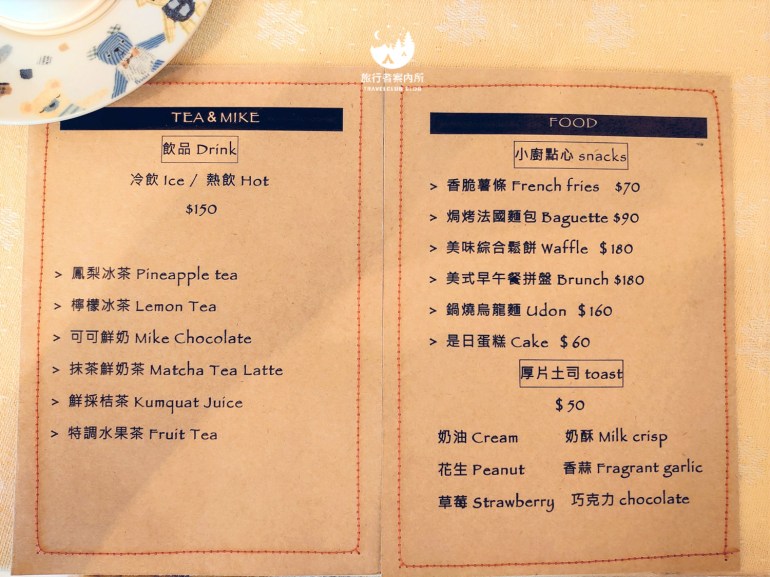 旅行者案内所
TRAVELERHD BLOG
TEA & MIKE
飲品 Drink
冷飲 Ice / 熱飲 Hot
$150
> 鳳梨冰茶 Pineapple tea
> 檸檬冰茶 Lemon Tea
> 可可鮮奶 Mike Chocolate
> 抹茶鮮奶茶 Matcha Tea Latte
> 鮮採桔茶 Kumquat Juice
> 特調水果茶 Fruit Tea
FOOD
小廚點心 snacks
> 香脆薯條 French fries $70
> 焗烤法國麵包 Baguette $90
> 美味綜合鬆餅 Waffle $180
> 美式早午餐拼盤 Brunch $180
> 鍋燒烏龍麵 Udon $160
> 是日蛋糕 Cake $60
厚片土司 toast
$50
奶油 Cream 奶酥 Milk crisp
花生 Peanut 香蒜 Fragrant garlic
草莓 Strawberry 巧克力 chocolate